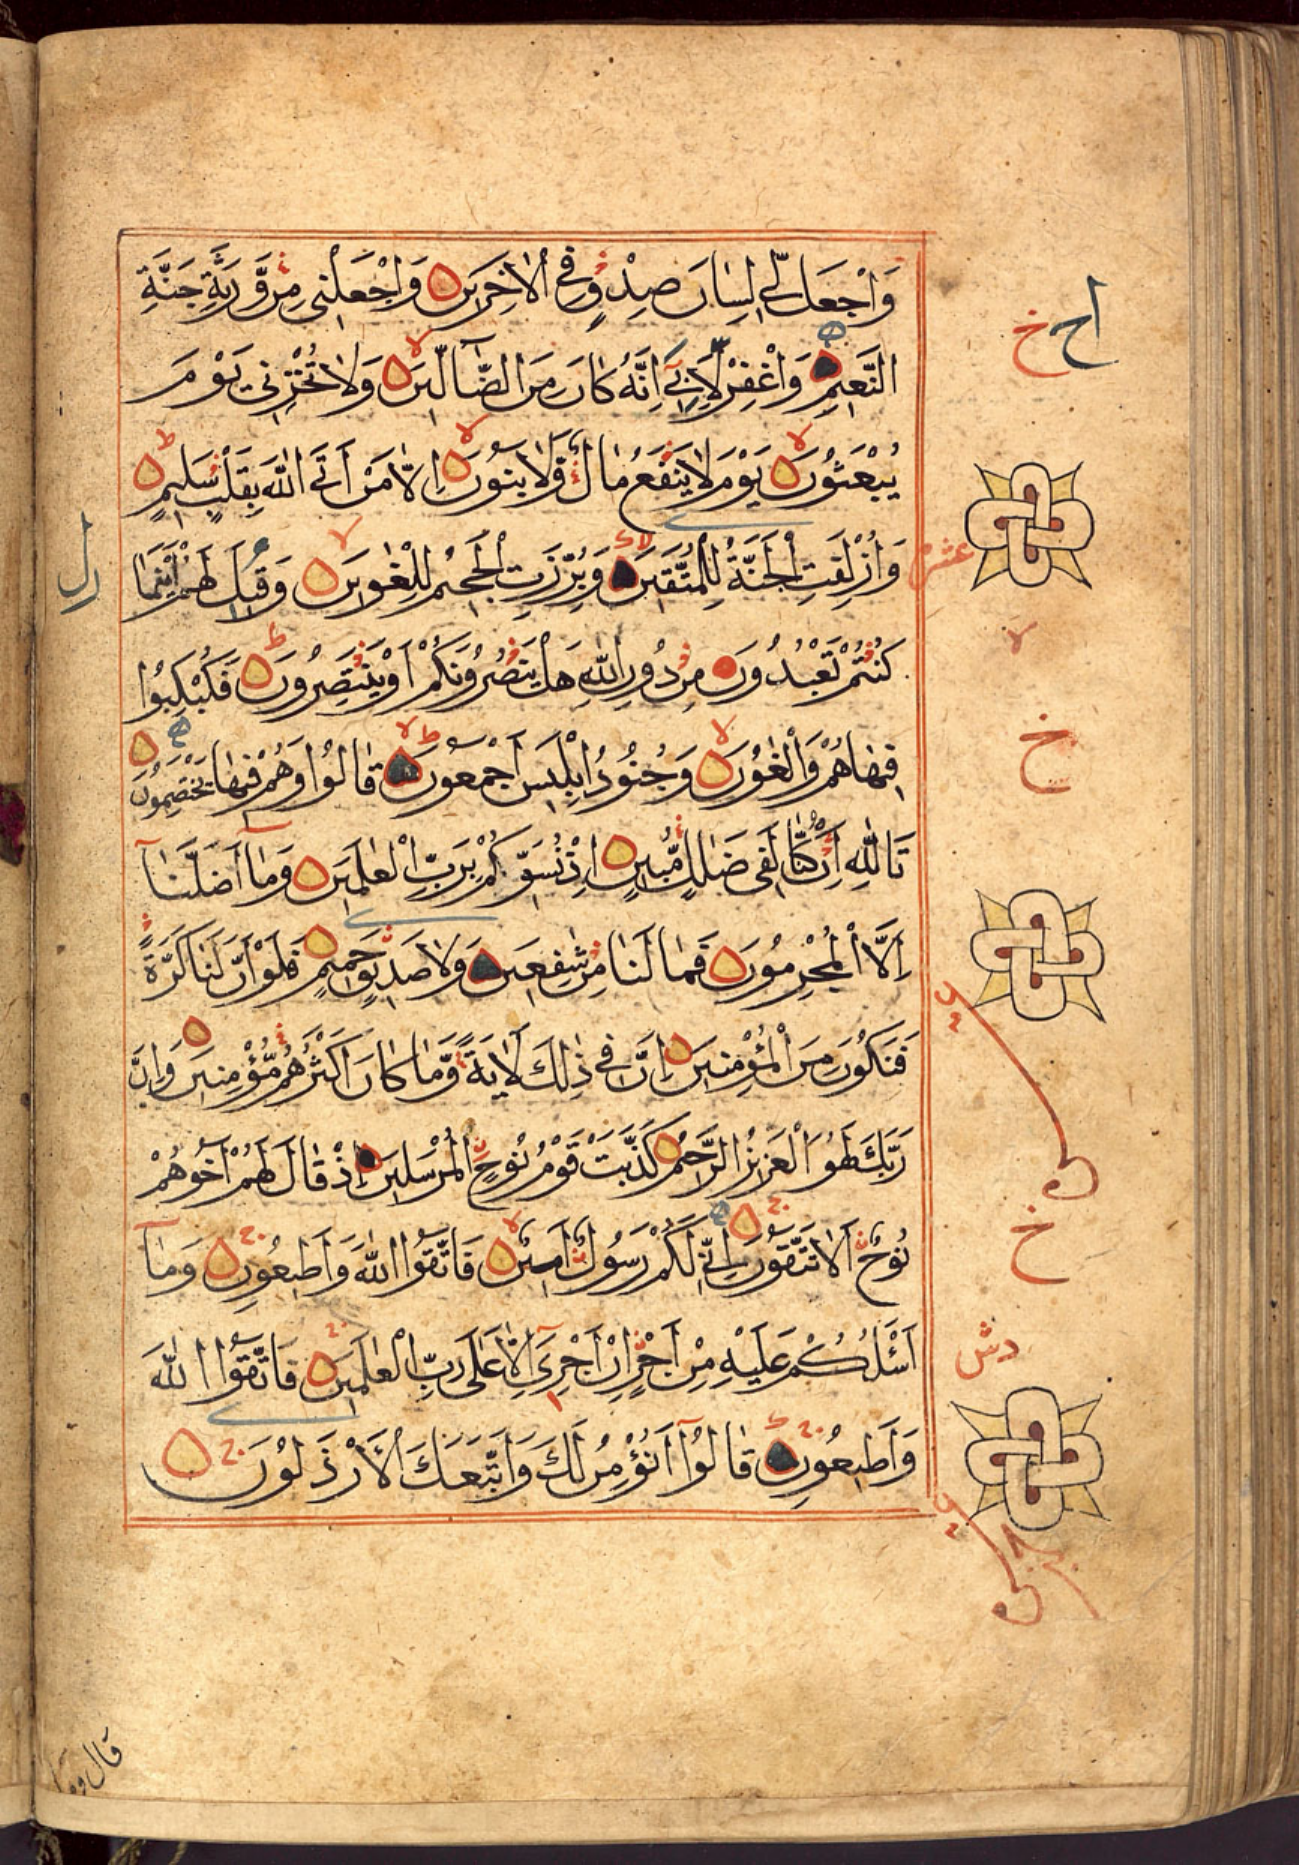 وَاجْعَل لِّي لِسَانَ صِدْقٍ فِي الْاٰخِرِينَ وَاجْعَلْنِي مِن وَّرَثَةِ جَنَّةِ
النَّعِيمِ وَاغْفِرْ لِاَبِي اِنَّهُ كَانَ مِنَ الضَّآلِّينَ وَلَا تُخْزِنِي يَوْمَ
يُبْعَثُونَ يَوْمَ لَا يَنْفَعُ مَالٌ وَّلَا بَنُونَ اِلَّا مَنْ اَتَى اللّٰهَ بِقَلْبٍ سَلِيمٍ
وَاُزْلِفَتِ الْجَنَّةُ لِلْمُتَّقِينَ وَبُرِّزَتِ الْجَحِيمُ لِلْغٰوِينَ وَقِيلَ لَهُمْ اَيْنَمَا
كُنْتُمْ تَعْبُدُونَ مِنْ دُونِ اللّٰهِ هَلْ يَنْصُرُونَكُمْ اَوْ يَنْتَصِرُونَ فَكُبْكِبُوا
فِيهَا هُمْ وَالْغٰوُنَ وَجُنُودُ اِبْلِيسَ اَجْمَعُونَ قَالُوا وَهُمْ فِيهَا يَخْتَصِمُونَ
تَاللّٰهِ اِنْ كُنَّا لَفِي ضَلٰلٍ مُّبِينٍ اِذْ نُسَوِّيكُمْ بِرَبِّ الْعٰلَمِينَ وَمَآ اَضَلَّنَآ
اِلَّا الْمُجْرِمُونَ فَمَا لَنَا مِنْ شٰفِعِينَ وَلَا صَدِيقٍ حَمِيمٍ فَلَوْ اَنَّ لَنَا كَرَّةً
فَنَكُونَ مِنَ الْمُؤْمِنِينَ اِنَّ فِي ذٰلِكَ لَاٰيَةً وَّمَا كَانَ اَكْثَرُهُمْ مُّؤْمِنِينَ وَاِنَّ
رَبَّكَ لَهُوَ الْعَزِيزُ الرَّحِيمُ كَذَّبَتْ قَوْمُ نُوحٍ الْمُرْسَلِينَ اِذْ قَالَ لَهُمْ اَخُوهُمْ
نُوحٌ اَلَا تَتَّقُونَ اِنِّي لَكُمْ رَسُولٌ اَمِينٌ فَاتَّقُوا اللّٰهَ وَاَطِيعُونِ وَمَآ
اَسْـَٔلُكُمْ عَلَيْهِ مِنْ اَجْرٍ اِنْ اَجْرِيَ اِلَّا عَلٰى رَبِّ الْعٰلَمِينَ فَاتَّقُوا اللّٰهَ
وَاَطِيعُونِ قَالُوٓا اَنُؤْمِنُ لَكَ وَاتَّبَعَكَ الْاَرْذَلُونَ
خ
عشر
خ
خ
قال وما